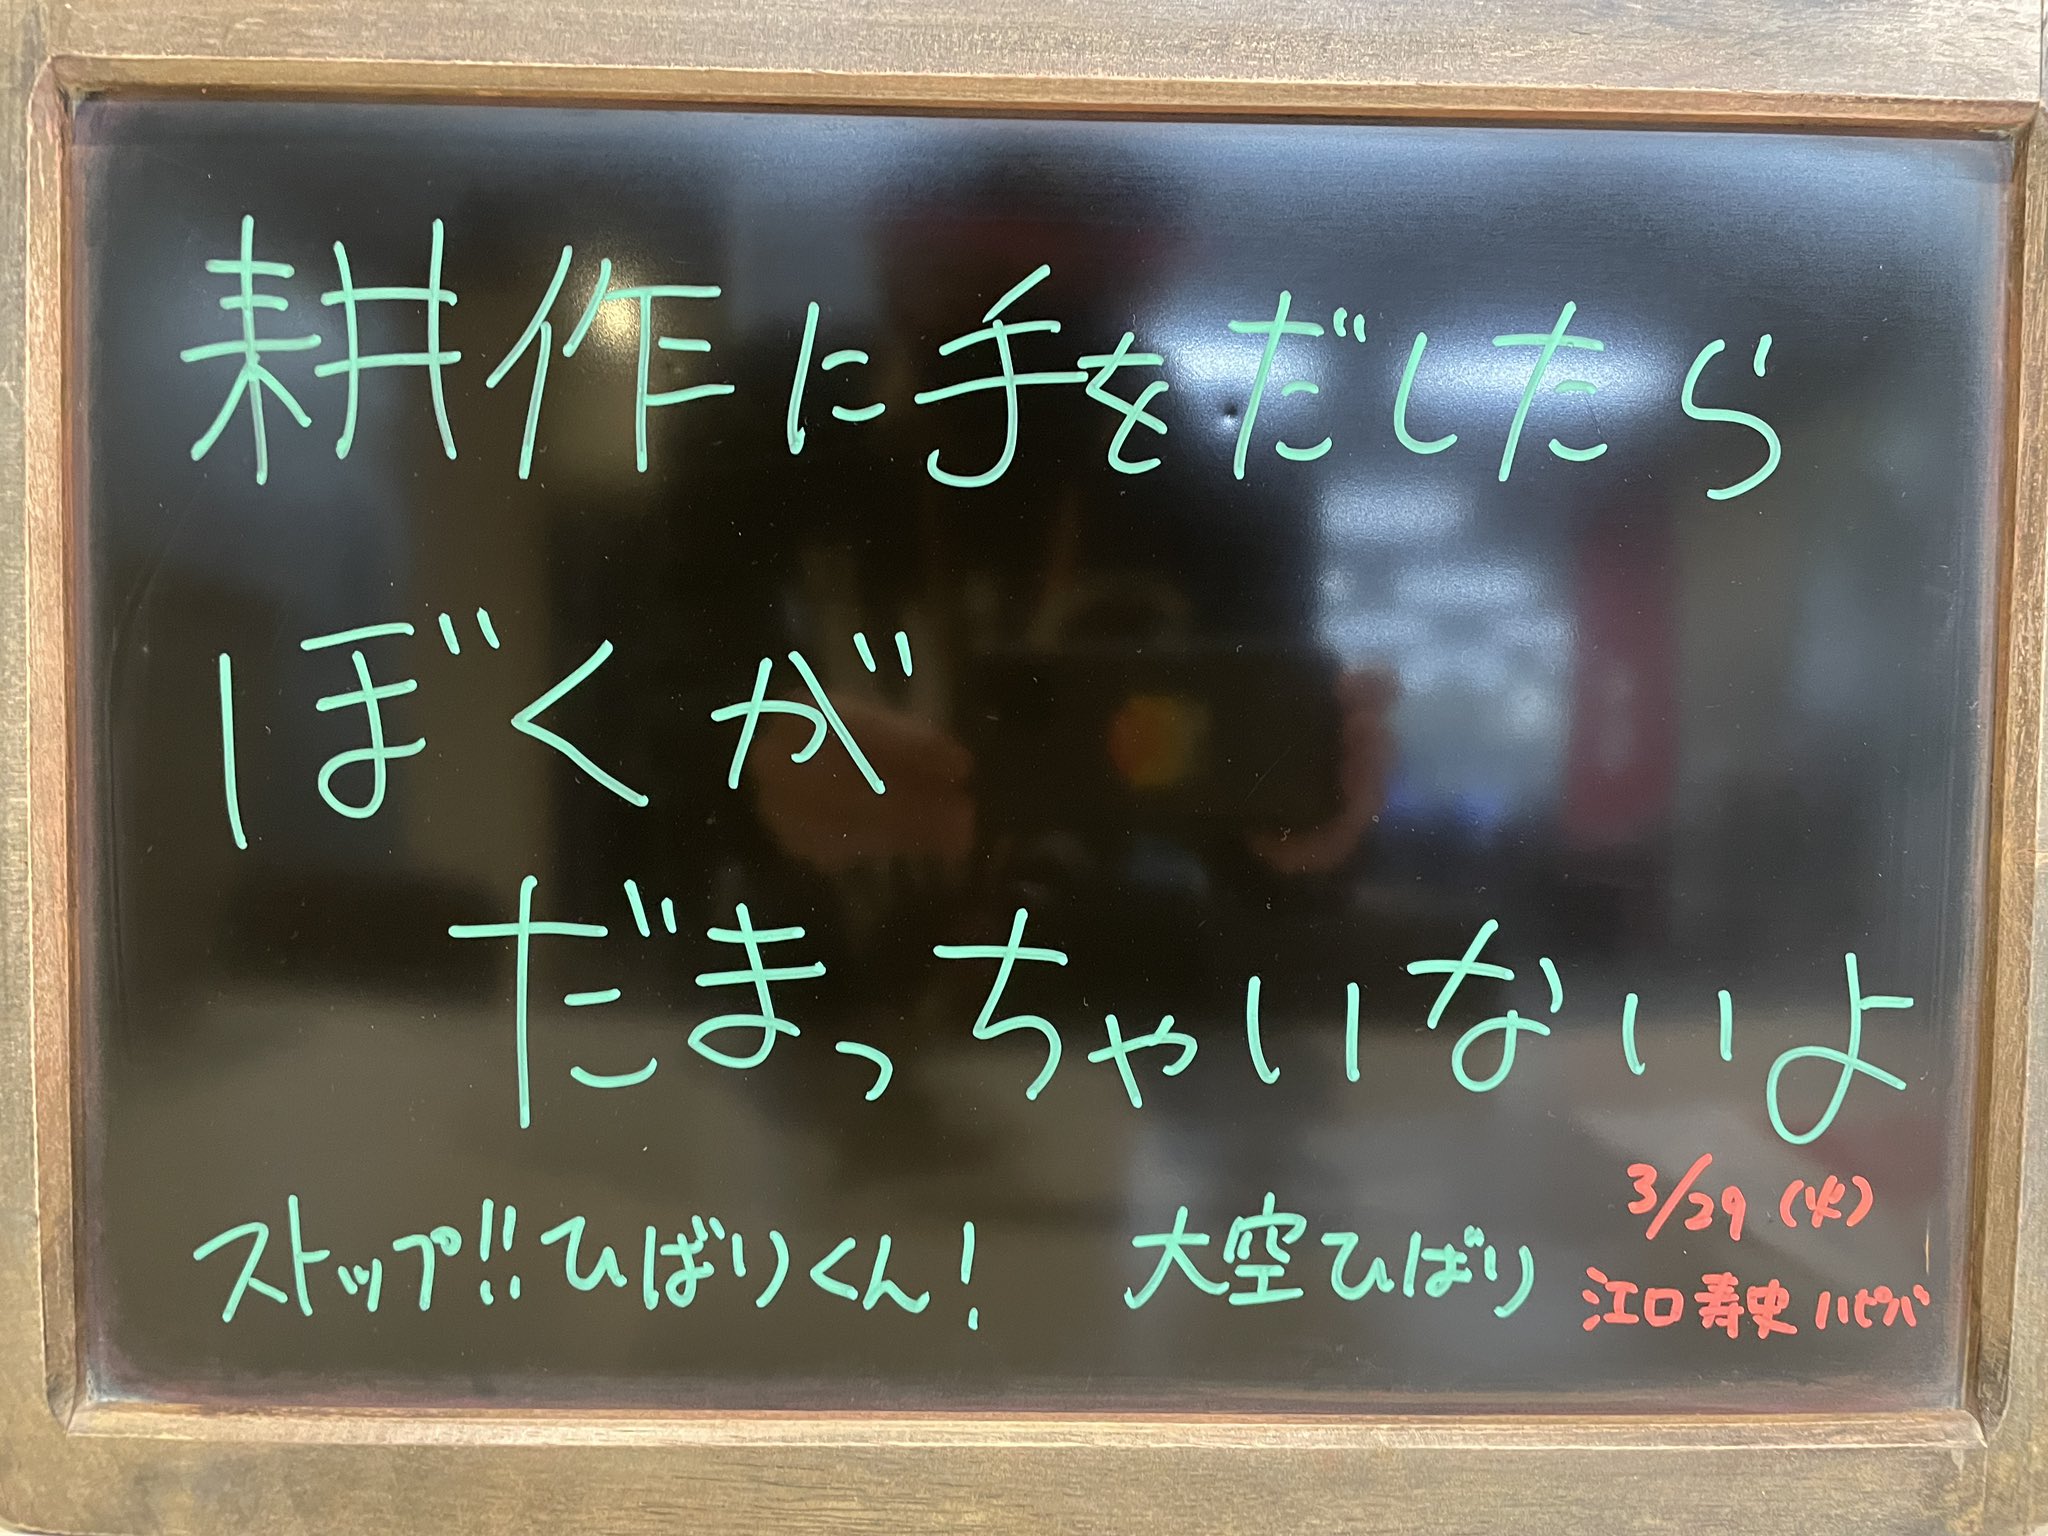 耕作に手をだしたら
ぼくが
だまっちゃいないよ
ストップ!!ひばりくん! 大空ひばり
3/29(火)
江口寿史ハピバ